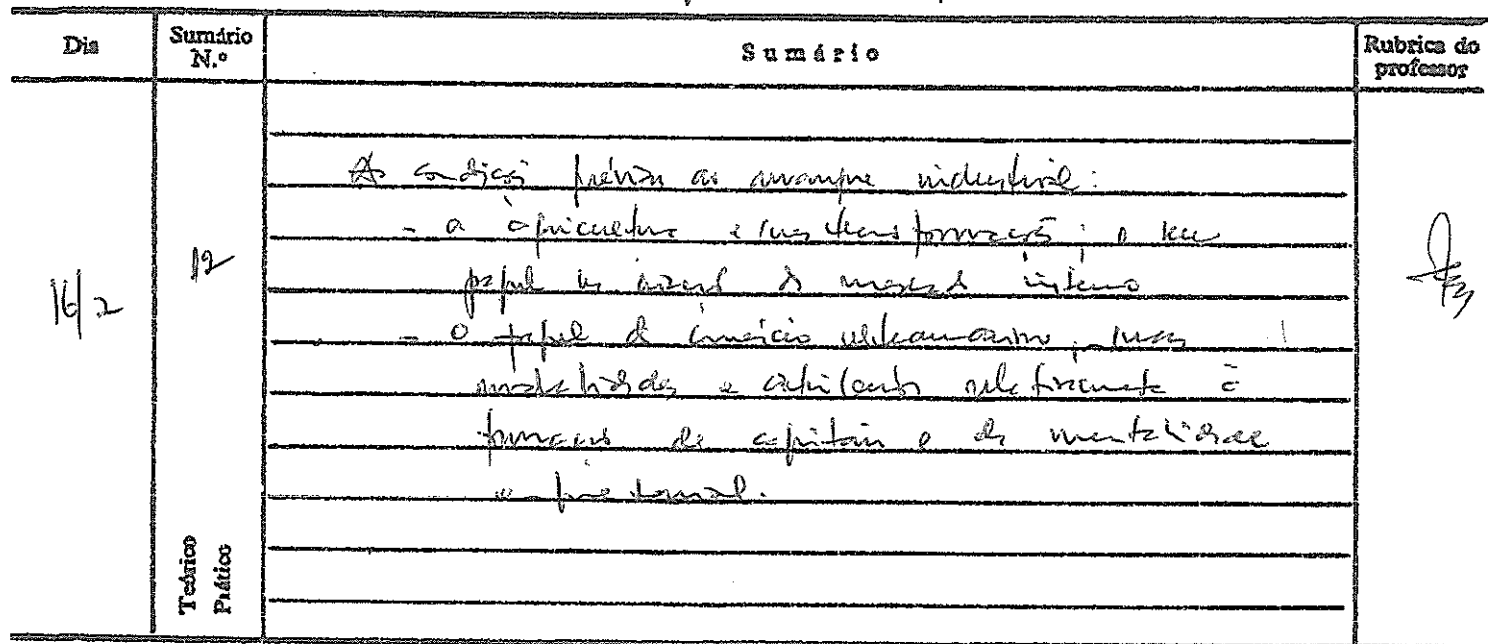 Dia
Sumário N.º
Sumário
Rubrica do professor
16/2
12
As condições prévias ao arranque industrial:
- a agricultura e sua transformação; o seu
papel na criação do mercado interno
- O papel do comércio ultramarino, suas
modalidades e relativamente à
formação de capitais e da mentalidade
empresarial.
Teórico
Prático